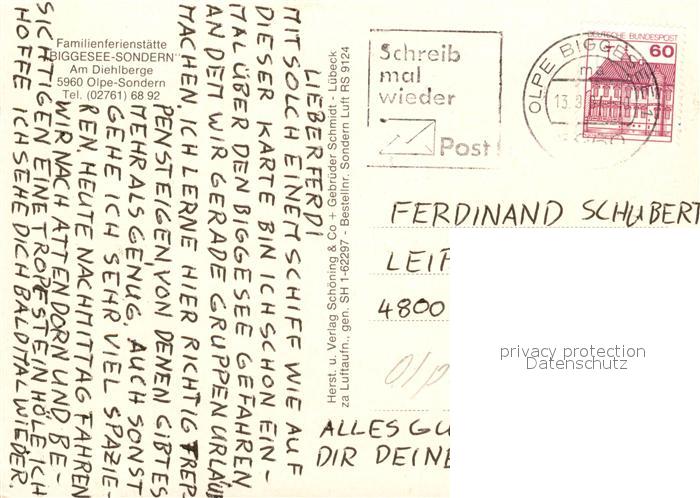 Familienferienstätte
"BIGGESEE-SONDERN"
Am Diehlberge
5960 Olpe-Sondern
Tel. (02761) 68 92
LIEBER FERDI
MIT SOLCH EINEM SCHIFF WIE AUF
DIESER KARTE BIN ICH SCHON EIN-
MAL ÜBER DEN BIGGESEE GEFAHREN
AN DEM WIR GERADE GRUPPENURLAUB
MACHEN, ICH LERNE HIER RICHTIG TREP-
PENSTEIGEN, VON DENEN GIBTES
MEHR ALS GENUG, AUCH SONST
GEHE ICH SEHR VIEL SPAZIE-
REN. HEUTE NACHMITTAG FAHREN
WIR NACH ATTENDORN UND BE-
SICHTIGEN EINE TROPFSTEINHÖLE, ICH
HOFFE ICH SEHE DICH BALD MAL WIEDER.
Herst. u. Verlag Schöning & Co + Gebrüder Schmidt - Lübeck
za Luftaufn., gen. SH 1-62297 - Bestellnr. Sondern Luft RS 9124
Schreib
mal
wieder
Post
DEUTSCHE BUNDESPOST
60
OLPE BIGGESEE
13.3
FERDINAND SCHUBERT
LEIP
4800
Olp
ALLES GU
DIR DEINE
privacy protection
Datenschutz